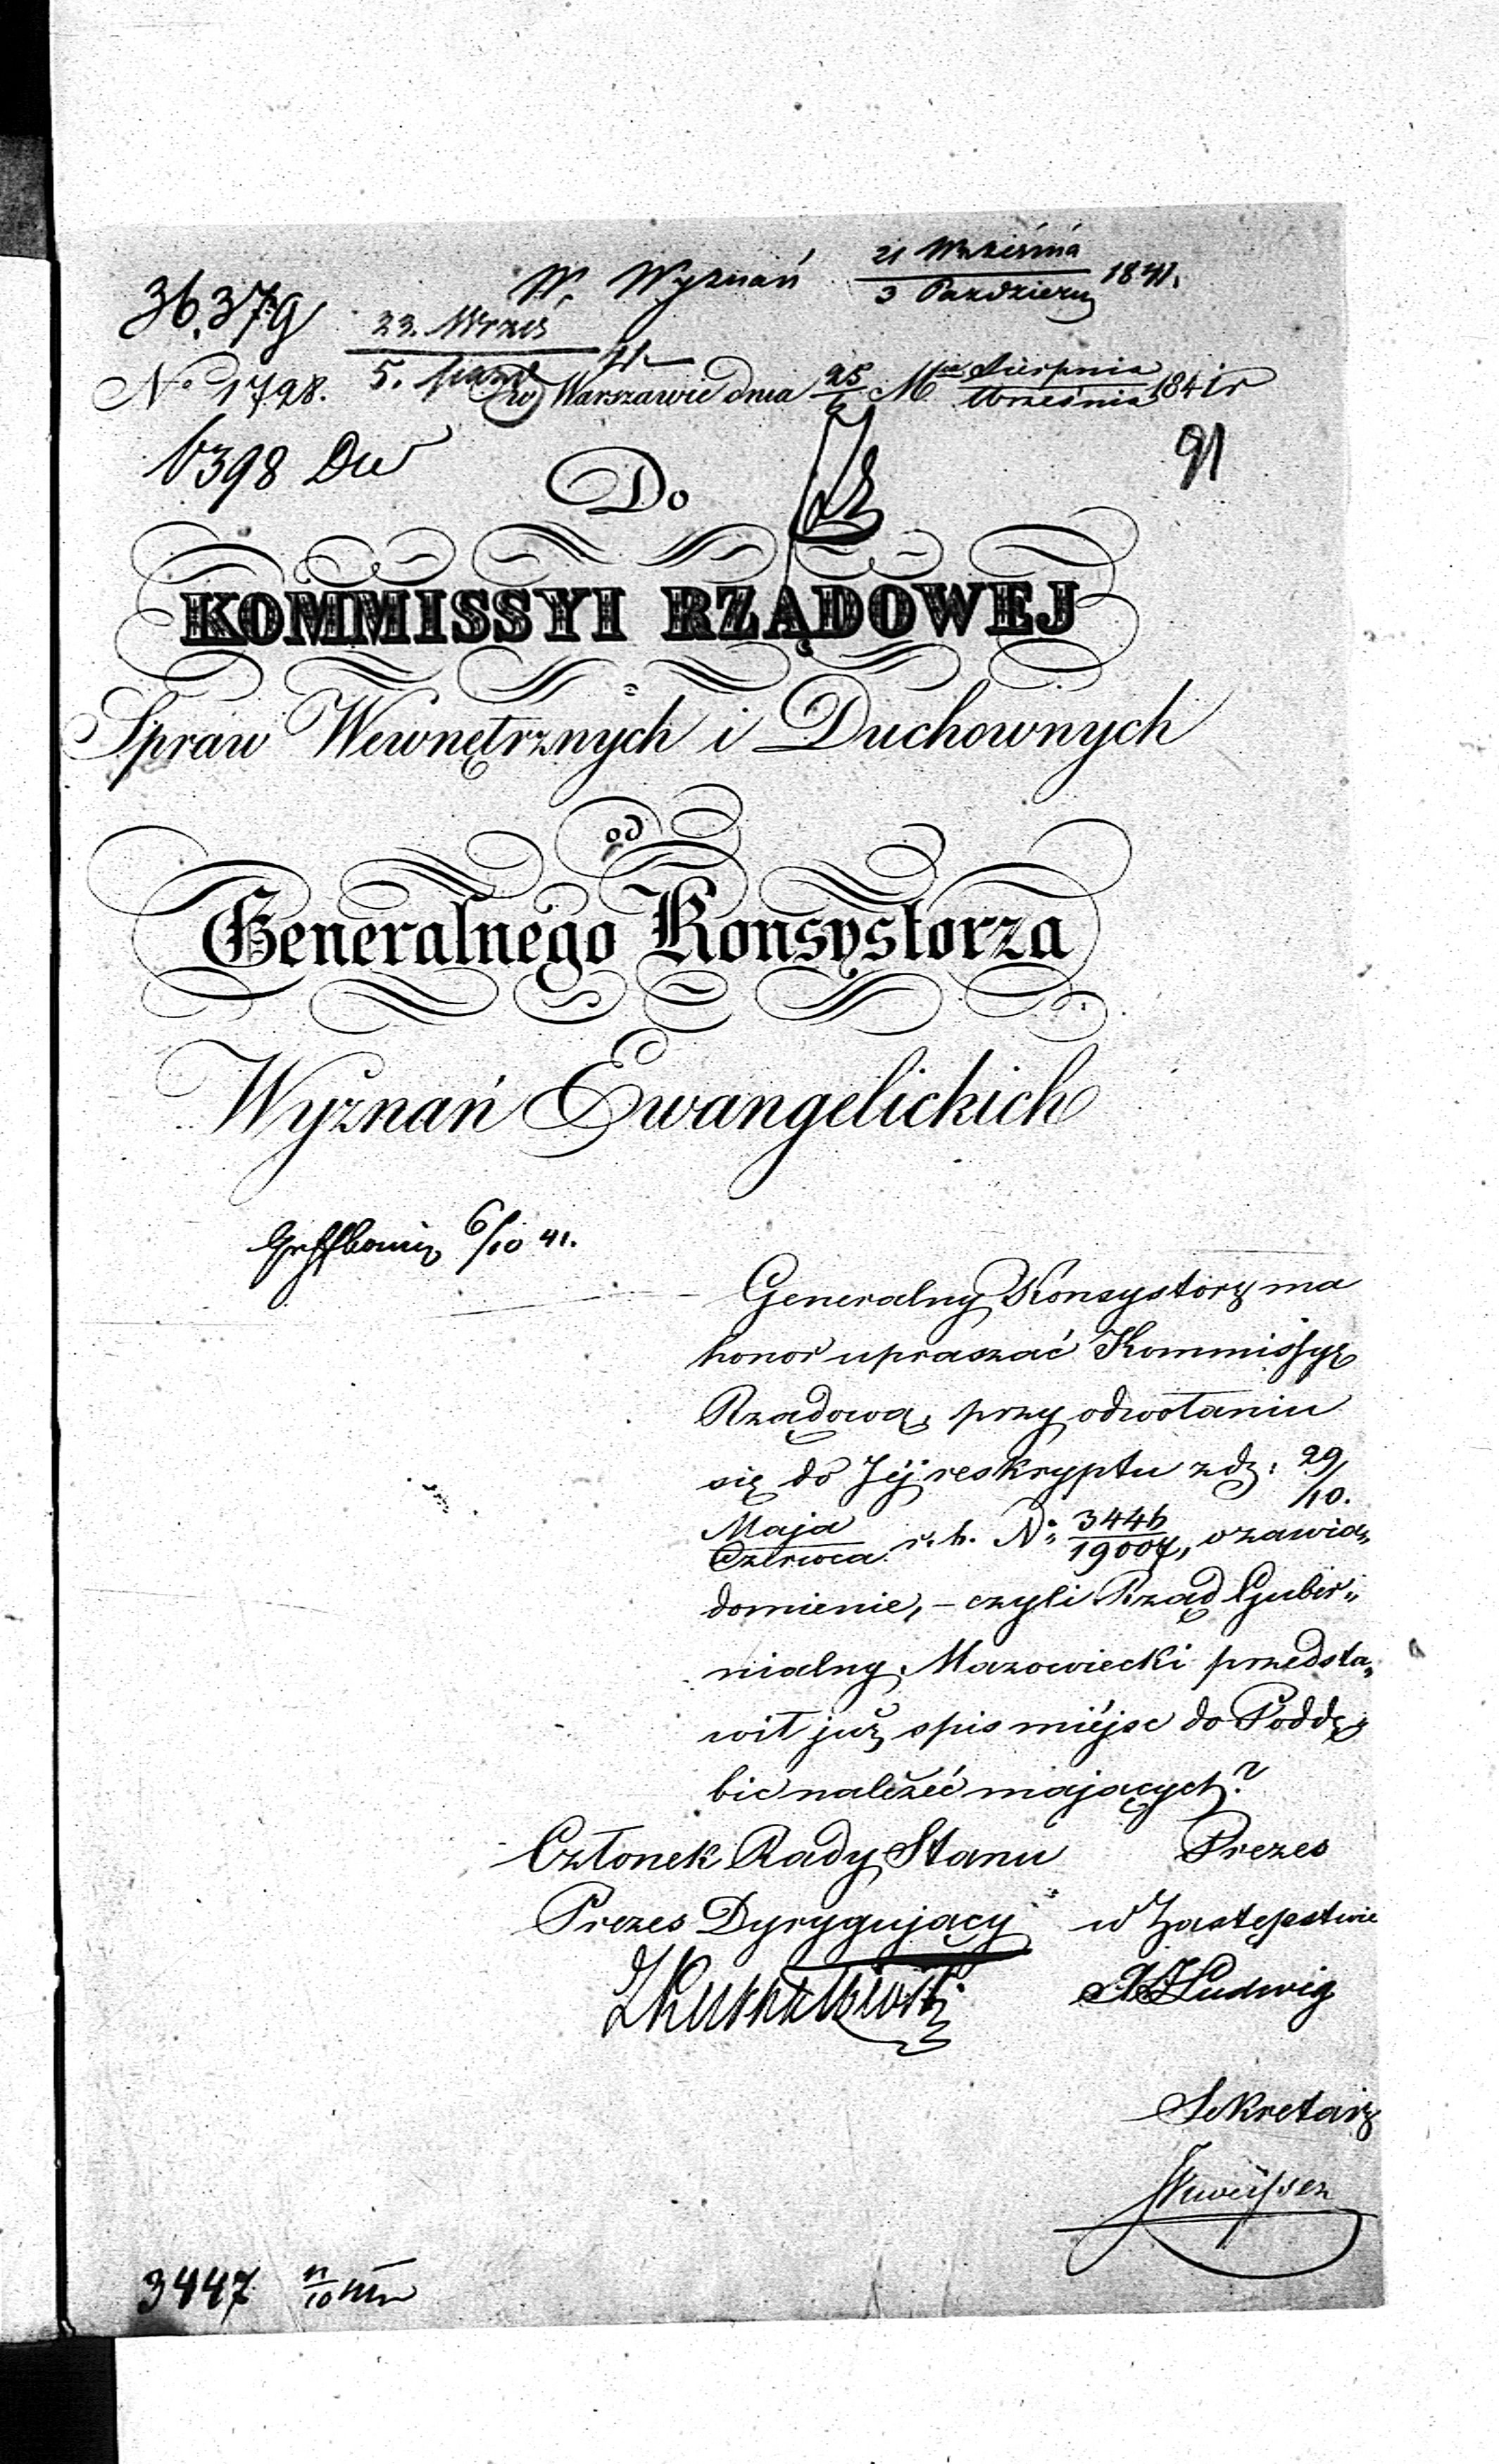 W. Wyznań 21 Września / 3 Październ 1841.
36,379
23. Wrześ / 5. Paźd 41
No 1728. w Warszawie dnia 25/6 Mca Sierpnia / Września 1841r
6398 Dw
91
Do
KOMMISSYI RZĄDOWEJ
Spraw Wewnętrznych i Duchownych
od
Generalnego Konsystorza
Wyznań Ewangelickich
6/10 41.
Generalny Konsystorz ma
honor upraszać Kommissyę
Rządową, przy odwołaniu
się do Jéj reskryptu z d: 29/10.
Maja / Czerwca r. b. No: 3446 / 19007, o zawia„
domienie, – czyli Rząd Guber„
nialny Mazowiecki przedsta„
wił już spis miéjsc do Poddę„
bic należéć mających?
Członek Rady Stanu Prezes
Prezes Dyrygujący w Zastępstwie
Ludwig
Sekretarz
3447 11/10